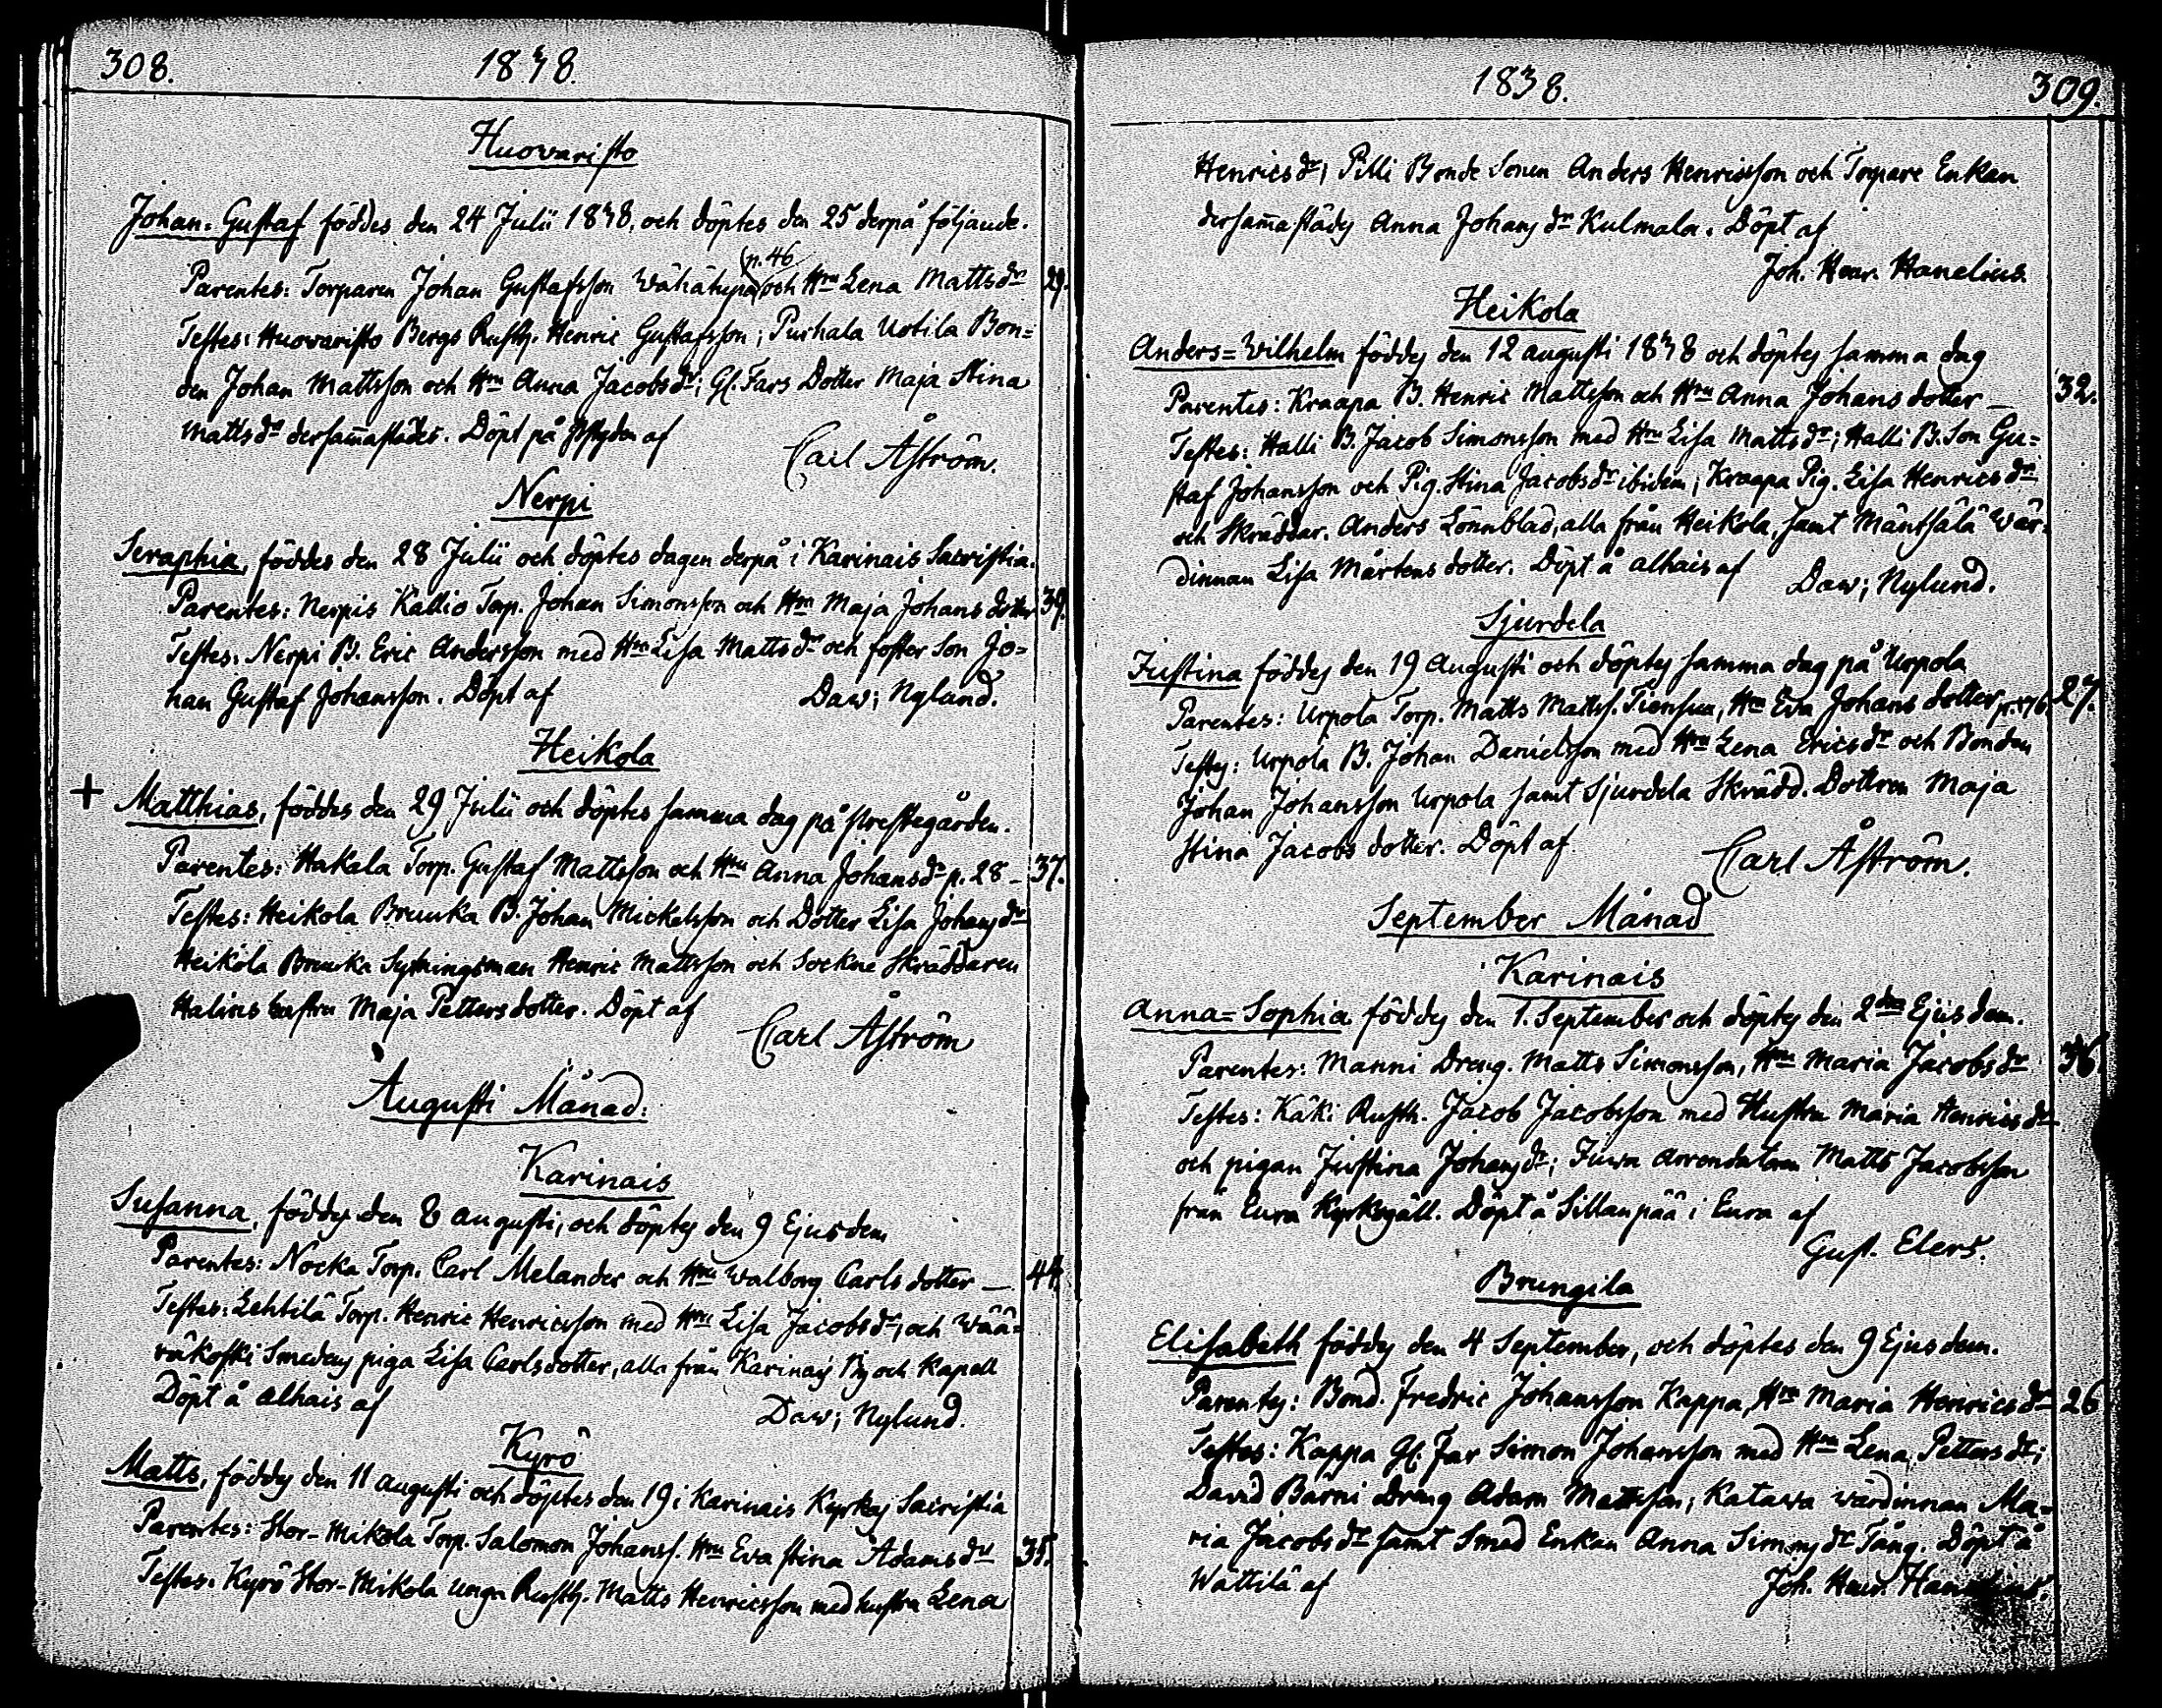 308.
1838.
Huovaristo
Johan-Gustaf föddes den 24 Julii 1838, och döptes den 25 derpå följande.
(p. 46
Parentes: Torparen Johan Gustafsson Wähähypä och Hru Lena Mattsdr 29.
Testes: Huovaristo Bergs Rusth. Henric Gustafsson; Purhala Uotila Bon=
den Johan Mattsson och Hru Anna Jacobsdr; Gl. Fars Dotter Maja Stina
Mattsdr dersam̄astädes. Döpt på af
Carl Åström.
Nerpi
Seraphia, föddes den 28 Julii och döptes dagen derpå i Karinais Sacristia.
Parentes: Nerpis Kallio Torp. Johan Simonsson och Hru Maja Johans dotter 39.
Testes. Nerpi B. Eric Andersson med Hru Lisa Mattsdr och foster Son Jo=
han Gustaf Johansson. Döpt af Daw; Nylund.
Heikola
+ Matthias, föddes den 29 Julii och döptes samma dag på Prestegården.
Parentes: Hakala Torp. Gustaf Mattsson och Hru Anna Johansdr p. 28 – 37.
Testes: Heikola Bruuka B. Johan Mickelsson och Dotter Lisa Johansdr
Heikola Bruuka Sytningsman Henric Mattsson och Sockne Skräddaren
Halins hustru Maja Petters dotter. Döpt af
Carl Åström
Augusti Månad:
Karinais
Susanna, föddes den 8 augusti, och döptes den 9 Ejusdem
Parentes: Nocka Torp. Carl Melander och Hru Walborg Carls dotter — 44.
Testes: Lehtilä Torp. Henric Henricsson med Hru Lisa Jacobsdr, och Wää=
räkoski Smedens piga Lisa Carlsdotter, alla från Karinais By och Kapell
Döpt å alhais af Daw; Nylund.
Kyrö
Matts, föddes den 11 augusti och döptes den 19 i Karinais Kyrkas Sacristia
Parentes: Stor-Mikola Torp. Salomon Johanss. Hru Eva Stina Adamsdr 35.
Testes. Kyrö Stor-Mikola unga Rusth. Matts Henricsson med hustru Lena
1838.
309.
Henricsdr; Pilli Bonde Sonen Anders Henricsson och Torpare Enkan
dersam̄astädes Anna Johansdr Kulmala. Döpt af
Joh. Henr. Hanelius.
Heikola
Anders=Wilhelm föddes den 12 augusti 1838 och döptes samma dag
Parentes: Kraapa B. Henric Mattsson och Hru Anna Johans dotter — 32.
Testes: Halli B. Jacob Simonsson med Hru Lisa Mattsdr; Halli B. Son Gu=
staf Johansson och Pig. Stina Jacobsdr ibidem; Kraapa Pig. Lisa Henricsdr
och Skräddar. Anders Lönnblad, alla från Heikola, samt Mäntsälä Wär=
dinnan Lisa Mårtens dotter. Döpt å alhais af Daw; Nylund.
Sjurdela
Justina föddes den 19 Augusti och döptes samma dag på Urpola
Parentes: Urpola Torp. Matts Matss. Tiensuu, Hru Eva Johans dotter 27.
Testes: Urpola B. Johan Danielsson med Hru Lena Ericsdr och Bonden
Johan Johansson Urpola samt Sjurdela Skrädd. Dottren Maja
Stina Jacobs dotter. Döpt af
Carl Åström.
September Månad
Karinais
Anna=Sophia föddes den 1. September och döptes den 2dra Ejusdem.
Parentes: Manni Dreng. Matts Simonsson, Hru Maria Jacobsdr 36
Testes: Käki Rusth. Jacob Jacobsson med Hustru Maria Henricsdr
och pigan Justina Johansdr; Juva Arrendatoren Matts Jacobsson
från Eura Kyrkogäll. Döpt å Sillanpää i Eura af
Gust. Elers.
Brungila
Elisabeth föddes den 4 September, och döptes den 9 Ejusdem.
Parentes: Bond. Fredric Johansson Kappa, Hru Maria Henricsdr 26
Testes: Kappa Gl. Far Simon Johansson med Hru Lena Pettersdr;
David Bärni Dreng Adam Mattsson; Katawa Wärdinnan Ma=
ria Jacobsdr samt Smed Enkan Anna Simonsdr Tång. Döpt å
Wättilä af Joh. Henr. Hanelius.